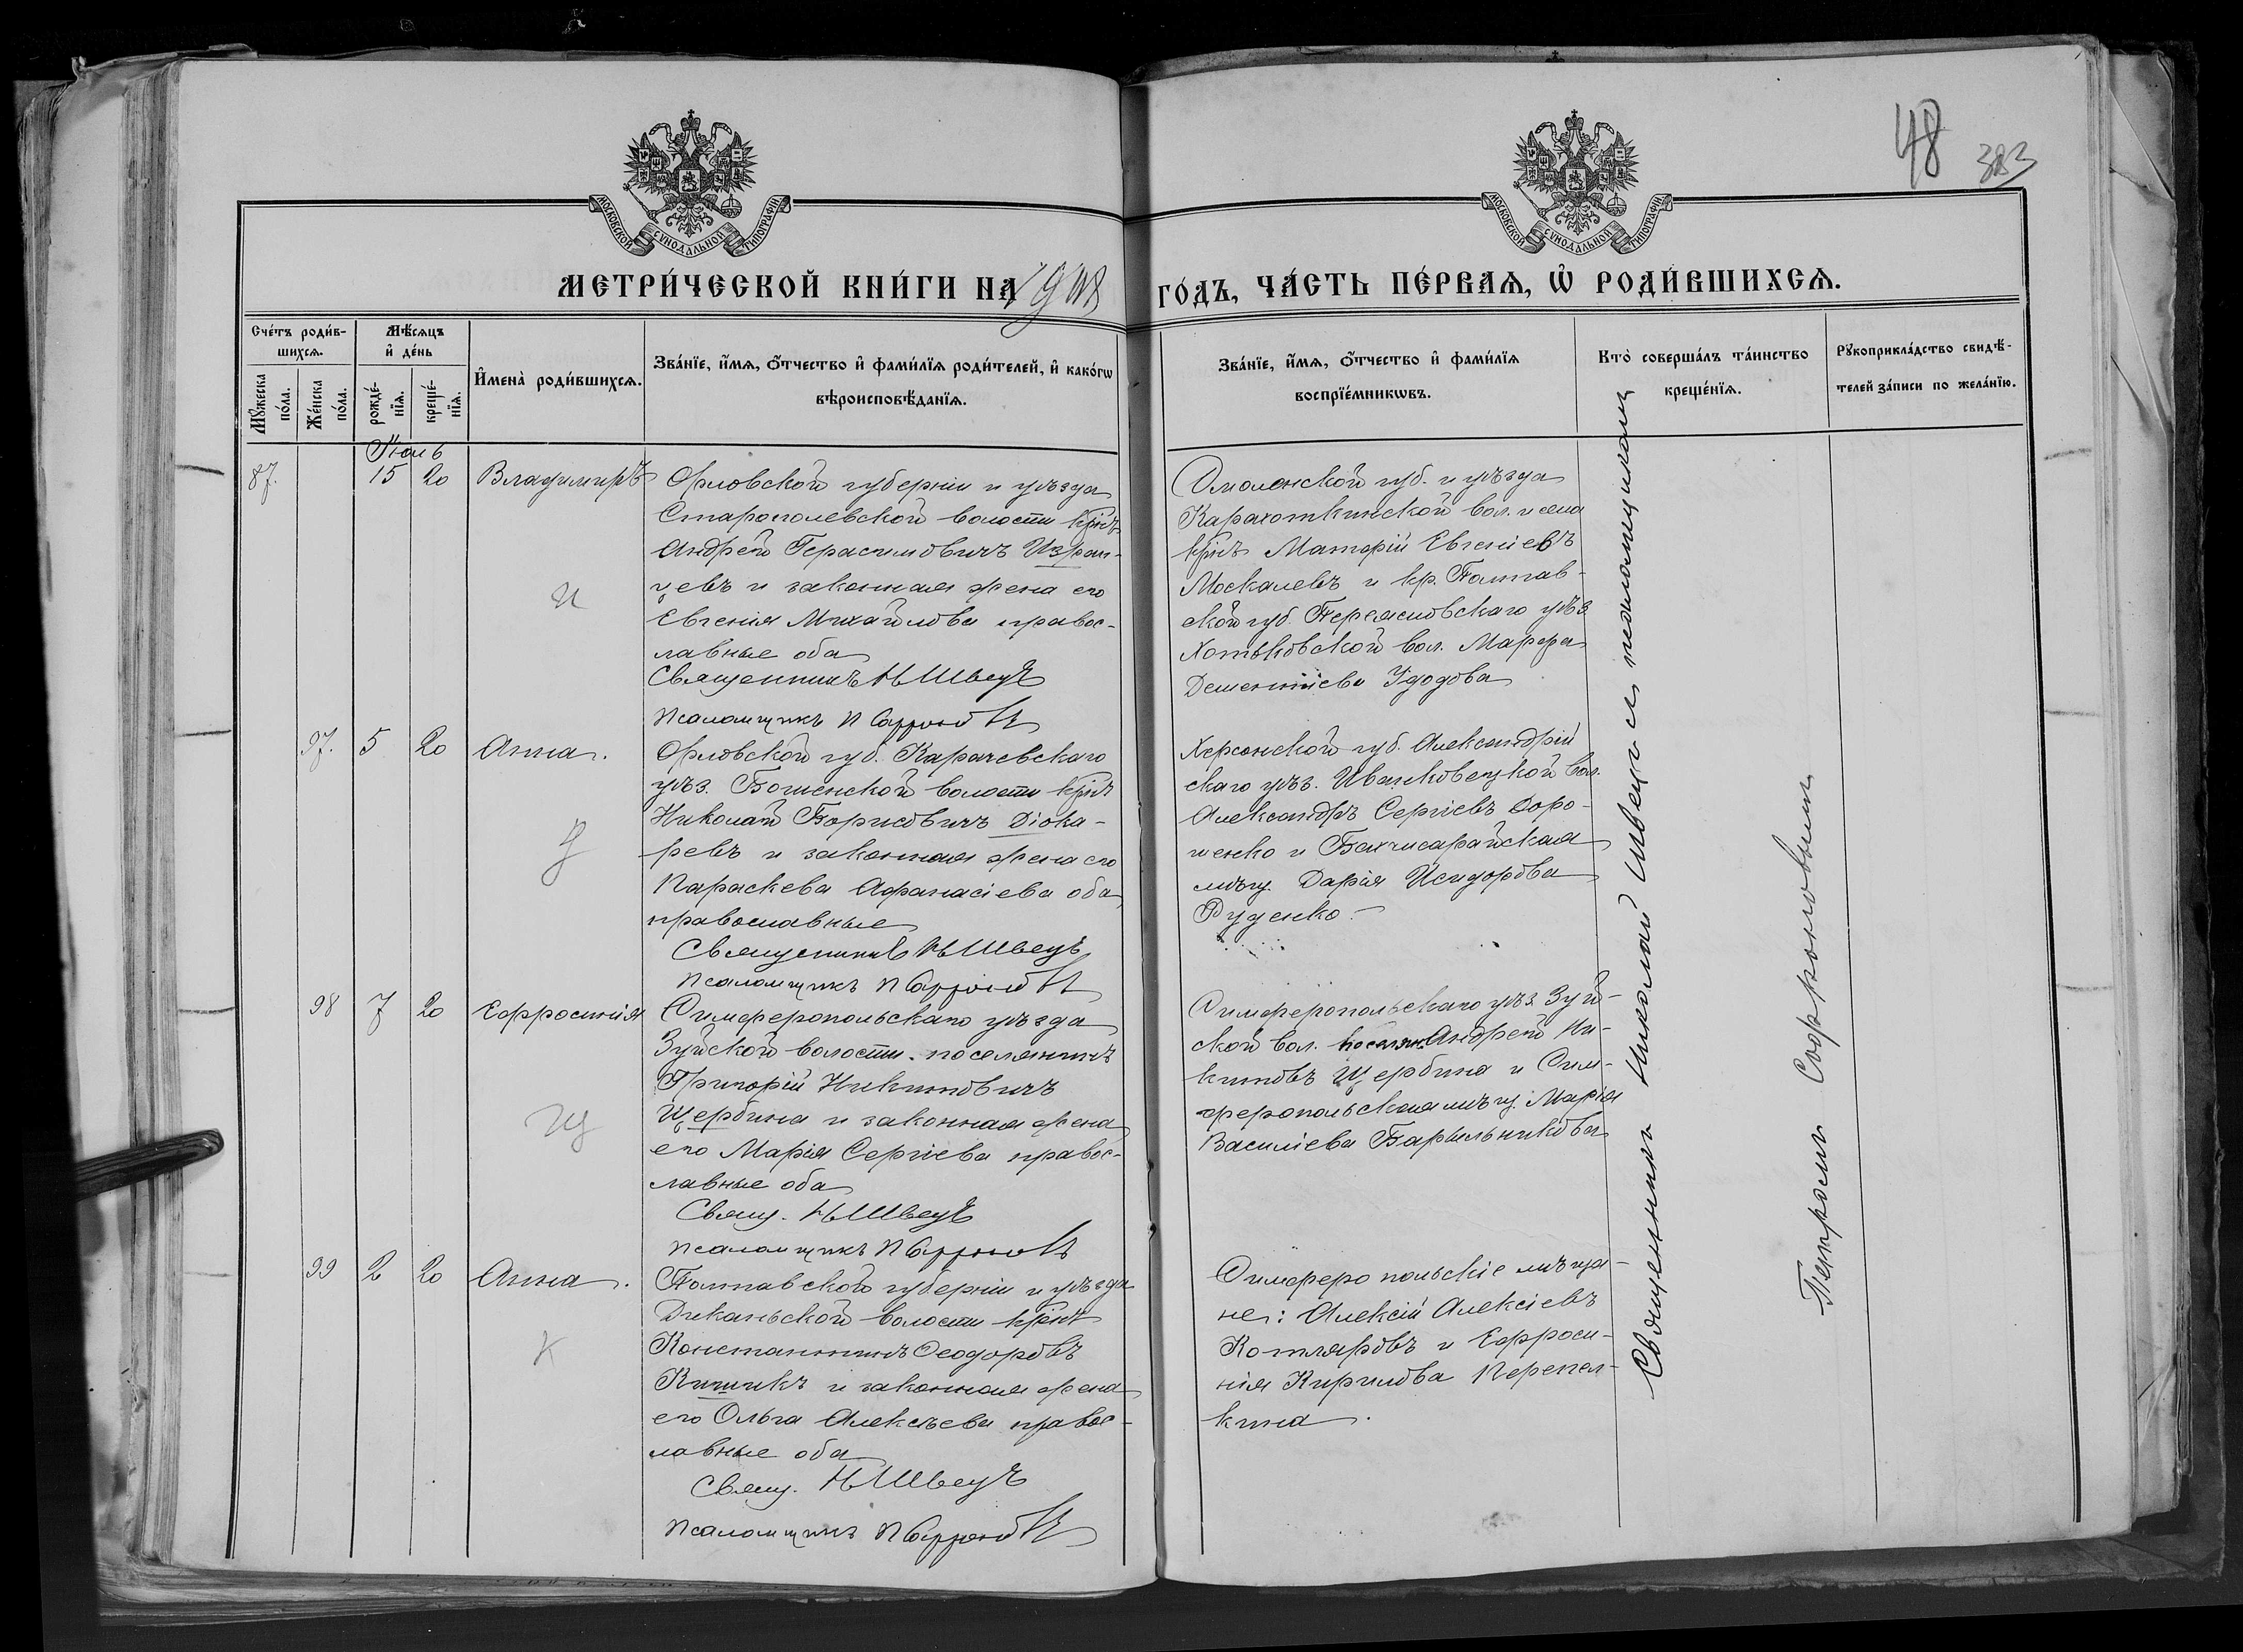 48
383
МОСКОВСКОЙ СѴНОДАЛЬНОЙ ТИПОГРАФІИ
МОСКОВСКОЙ СѴНОДАЛЬНОЙ ТИПОГРАФІИ
МЕТРИ́ЧЕСКОЙ КНИ́ГИ НА
ГО́ДЪ, ЧА́СТЬ ПЕ́РВАѦ, Ѽ РОДИ́ВШИХСѦ.
Сче́тъ роди́в-
шихсѧ.
Мꙋ́жеска
по́ла.
Же́нска
по́ла.
Мѣ́сѧцъ
и҆ де́нь
рожде́-
нїѧ.
креще́-
нїѧ.
И҆мена̀ роди́вшихсѧ.
Зва́нїе, и҆́мѧ, ѻ҆́тчество и҆ фами́лїѧ роди́телей, и҆ како́гѡ
вѣроисповѣ́данїѧ.
Зва́нїе, и҆́мѧ, ѻ҆́тчество и҆ фами́лїѧ
воспрїе́мникѡвъ.
Кто̀ соверша́лъ та́инство
креще́нїѧ.
Рꙋкоприкла́дство свидѣ́-
телей за́писи по жела́нїю.
87.
15
20
Владимиръ
Орловской губерніи и уѣзда
Старополевской волости кр-нъ
Андрей Герасимовичъ Изран-
цевъ и законная жена его
Евгенія Михайлова правос-
лавные оба
Священникъ Н Швецъ
Псаломщикъ П Софроновъ
Смоленской губ. и уѣзда
вол. и села
кр-нъ Евгеніевъ
Москалевъ и кр. Полтав-
ской губ. Переяславскаго уѣз.
вол. Марфа
Дементіева Удодова
И
97.
5
20
Анна.
Орловской губ. Карачевскаго
уѣз. волости кр-нъ
Николай Борисовичъ Діока-
ревъ и законная жена его
Параскева Афанасіева оба
православные
Священникъ Н Швецъ
Псаломщикъ П Софроновъ
Херсонской губ. Александрій
скаго уѣз. Иванковецкой вол.
Александръ Сергіевъ Доро-
шенко и Бахчисарайская
мѣщ. Дарія Исидорова
Руденко.
Д
98
7
20
Ефросинія
Симферопольскаго уѣзда
Зуйской волости поселянинъ
Григорій Никитовичъ
Щербина и законная жена
его Марія Сергіева правос-
лавные оба
Свящ. Н Швецъ
Псаломщикъ П Софроновъ
Симферопольскаго уѣз. Зуй-
ской вол. поселян. Андрей Ни-
китовъ Щербина и Сим-
феропольская мѣщ. Марія
Василіева Барыльникова
Щ
99
2
20
Анна.
Полтавской губерніи и уѣзда
Диканьской волости кр-нъ
Константинъ Ѳеодоровъ
Кишикъ и законная жена
его Ольга Алексѣева правос-
лавные оба
Свящ. Н Швецъ
Псаломщикъ П Софроновъ
Симферопольскіе мѣща-
не: Алексій Алексіевъ
Котляровъ и Ефроси-
нія Кирилова Перепел-
кина.
К
Священникъ Николай Швецъ съ псаломщикомъ
Петромъ Софроновымъ